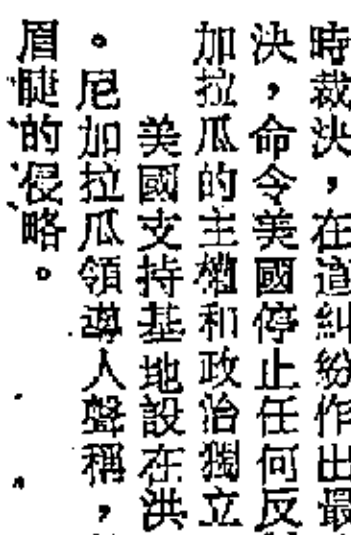 時裁決，在這糾紛作出最
決，命令美國停止任何反
加拉瓜的主權和政治獨立
美國支持基地設在洪
。尼加拉瓜領導人聲稱，
眉睫的侵略。